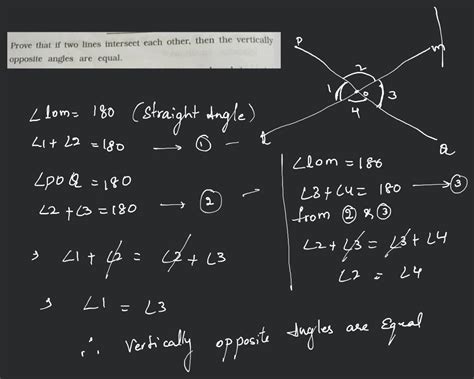 Prove that if two lines intersect each other, then the vertically
opposite angles are equal.
P
m
2
1
o
3
4
l
Q
∠lom = 180 (Straight Angle)
∠1 + ∠2 = 180 → ①
∠POQ = 180
∠2 + ∠3 = 180 → ②
⇒ ∠1 + ∠2 = ∠2 + ∠3
⇒ ∠1 = ∠3
∠lom = 180
∠3 + ∠4 = 180 → ③
from ② & ③
∠2 + ∠3 = ∠3 + ∠4
∠2 = ∠4
∴ Vertically opposite Angles are Equal